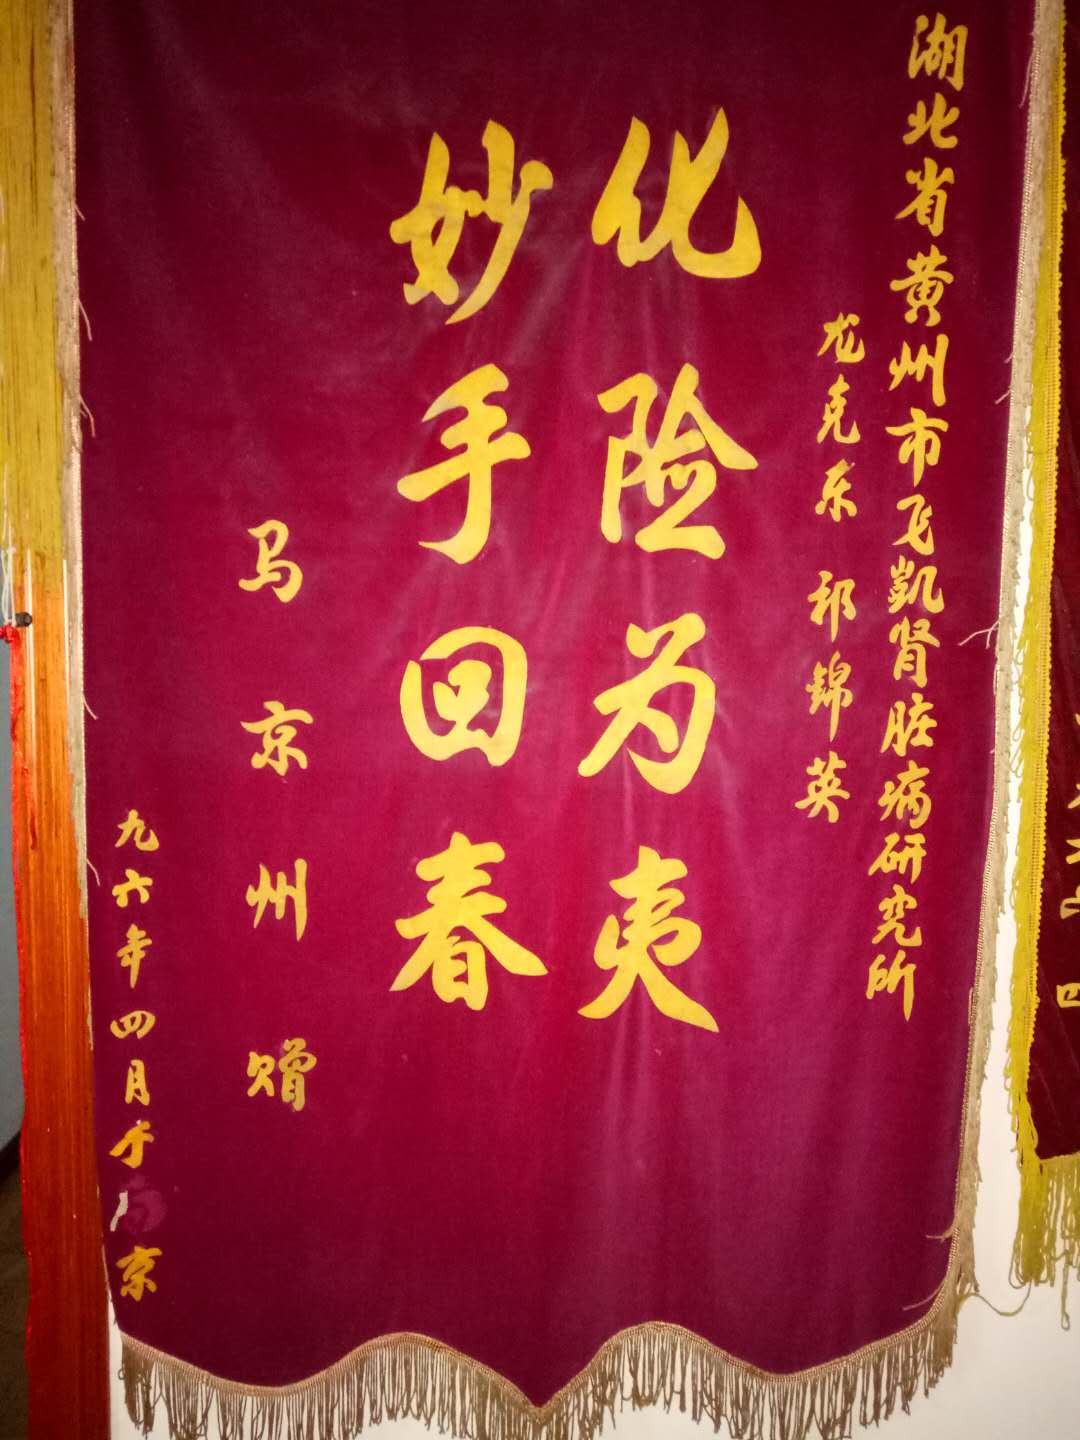 湖北省黄州市飞凯肾脏病研究所
龙克东 祁锦英
化险为夷
妙手回春
马京州赠
九六年四月于 京
四